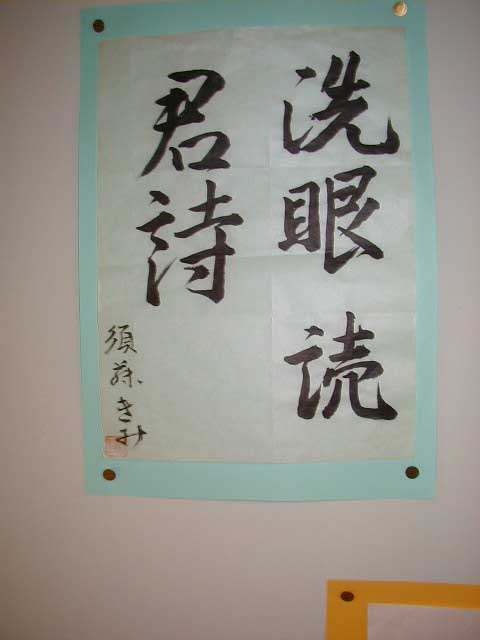 洗眼読
君詩
須藤きみ